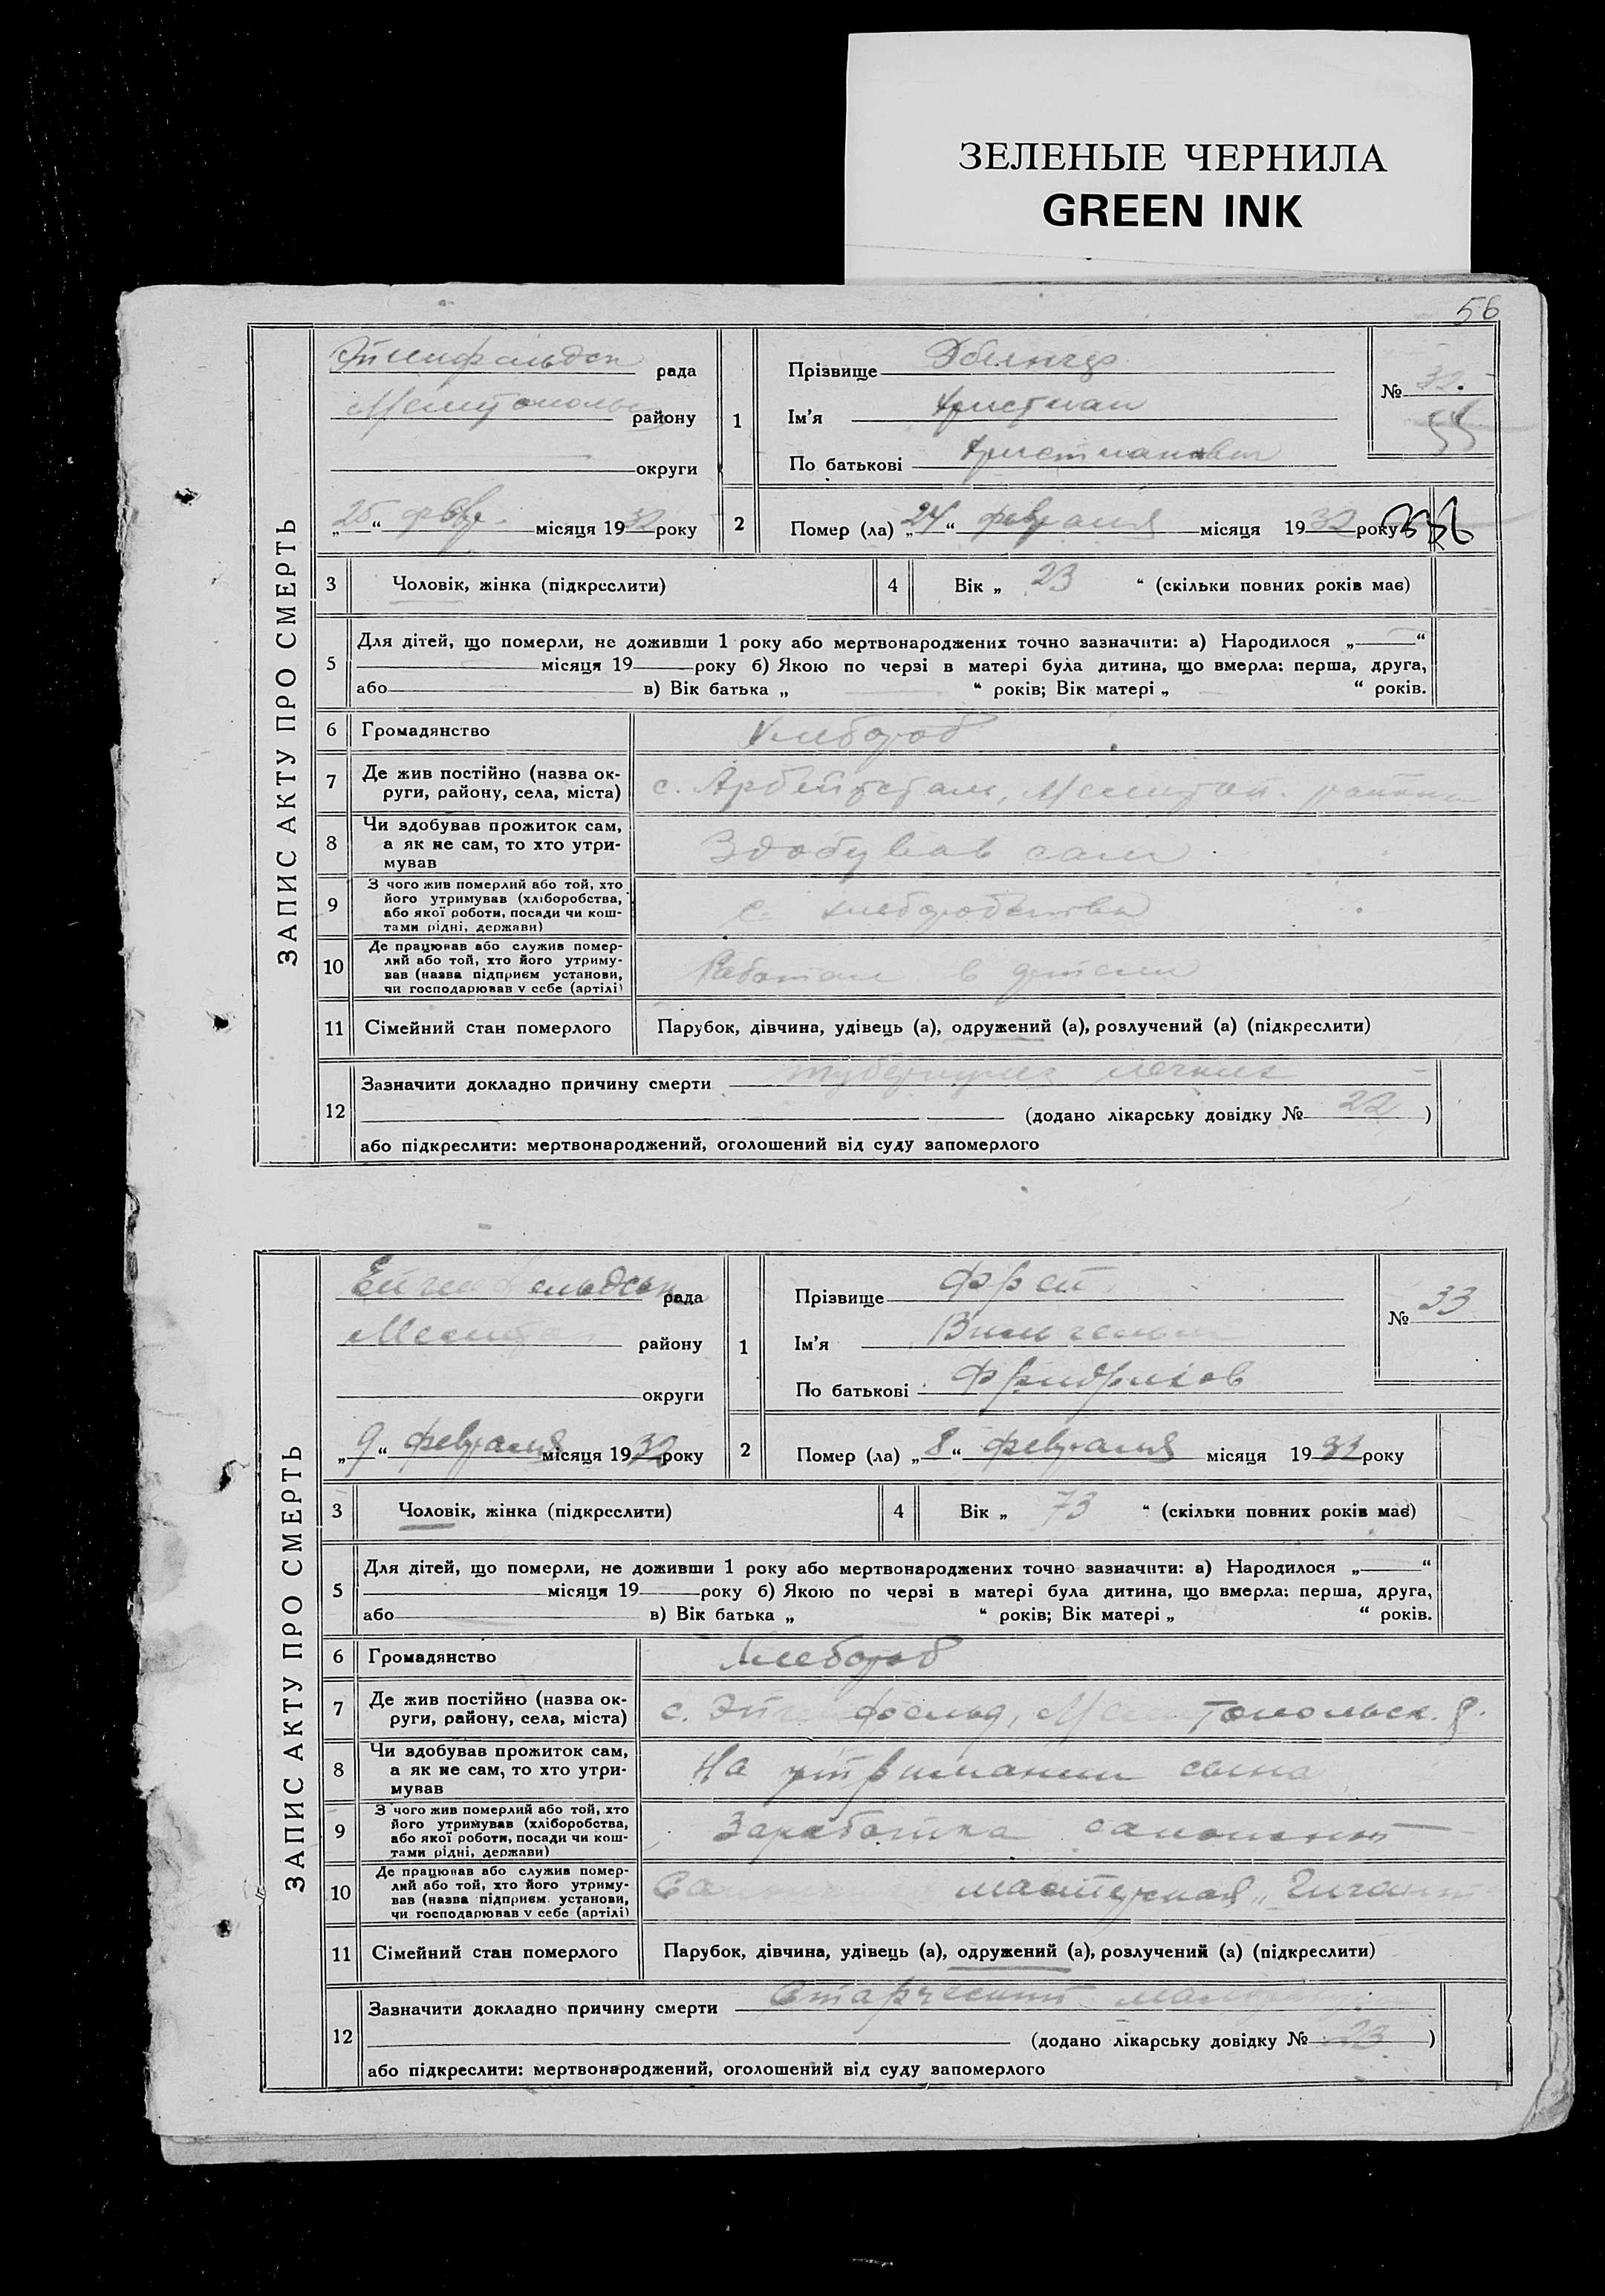 ЗЕЛЕНЫЕ ЧЕРНИЛА
GREEN INK
56
ЗАПИС АКТУ ПРО СМЕРТЬ
рада
району
округи
„25“ февр. місяця 1932 року
1
Прізвище
Ім'я Христиан
По батькові
№ 32.
55
2
Помер (ла) „24“ февраля місяця 1932 року
3 Чоловік, жінка (підкреслити)
4 Вік „ 23 “ (скільки повних років має)
5
Для дітей, що померли, не доживши 1 року або мертвонароджених точно зазначити: а) Народилося „ “
місяця 19 року б) Якою по черзі в матері була дитина, що вмерла: перша, друга,
або в) Вік батька „ “ років; Вік матері „ “ років.
6 Громадянство Хлебороб
7 Де жив постійно (назва ок-
руги, району, села, міста)
с.
8 Чи здобував прожиток сам,
а як не сам, то хто утри-
мував
Здобував сам
9 З чого жив померлий або той, хто
його утримував (хліборобства,
або якої роботи, посади чи кош-
тами рідні, держави)
с хлеборобства
10 Де працював або служив помер-
лий або той, хто його утриму-
вав (назва підприєм установи,
чи господарював у себе (артілі)
Работал в артели
11 Сімейний стан померлого Парубок, дівчина, удівець (а), одружений (а), розлучений (а) (підкреслити)
12
Зазначити докладно причину смерти туберкулез легких
(додано лікарську довідку № 22 )
або підкреслити: мертвонароджений, оголошений від суду запомерлого
ЗАПИС АКТУ ПРО СМЕРТЬ
рада
району
округи
„9“ февраля місяця 1932 року
1
Прізвище Фрей
Ім'я Вильгельм
По батькові Фридрихов
№ 33
2
Помер (ла) „8“ февраля місяця 19 року
3 Чоловік, жінка (підкреслити)
4 Вік „ 73 “ (скільки повних років має)
5
Для дітей, що померли, не доживши 1 року або мертвонароджених точно зазначити: а) Народилося „ “
місяця 19 року б) Якою по черзі в матері була дитина, що вмерла: перша, друга,
або в) Вік батька „ “ років; Вік матері „ “ років.
6 Громадянство Хлебороб
7 Де жив постійно (назва ок-
руги, району, села, міста)
с. Эйгенфельд, Мелитопольск. р.
8 Чи здобував прожиток сам,
а як не сам, то хто утри-
мував
На утримании сына
9 З чого жив померлий або той, хто
його утримував (хліборобства,
або якої роботи, посади чи кош-
тами рідні, держави)
Заработка
10 Де працював або служив помер-
лий або той, хто його утриму-
вав (назва підприєм. установи,
чи господарював у себе (артілі)
мастерская „Гигант
11 Сімейний стан померлого Парубок, дівчина, удівець (а), одружений (а), розлучений (а) (підкреслити)
12
Зазначити докладно причину смерти Старческий
(додано лікарську довідку № 23 )
або підкреслити: мертвонароджений, оголошений від суду запомерлого